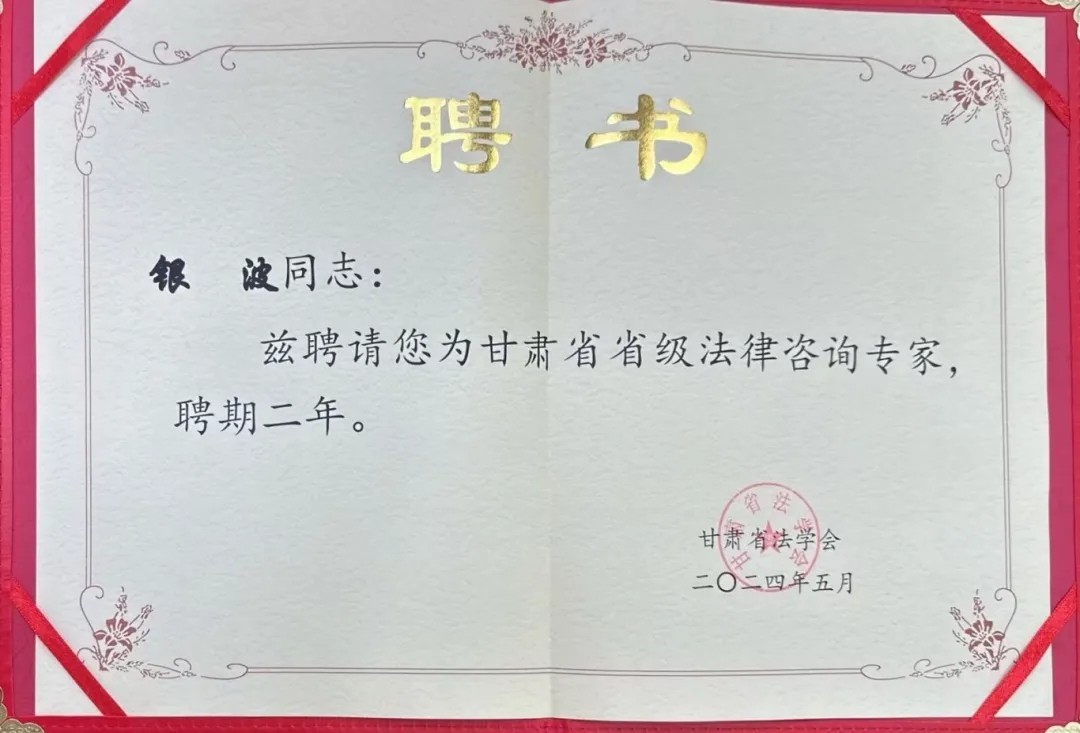 聘 书
银 波同志：
兹聘请您为甘肃省省级法律咨询专家，
聘期二年。
甘肃省法学会
甘肃省法学会
二〇二四年五月